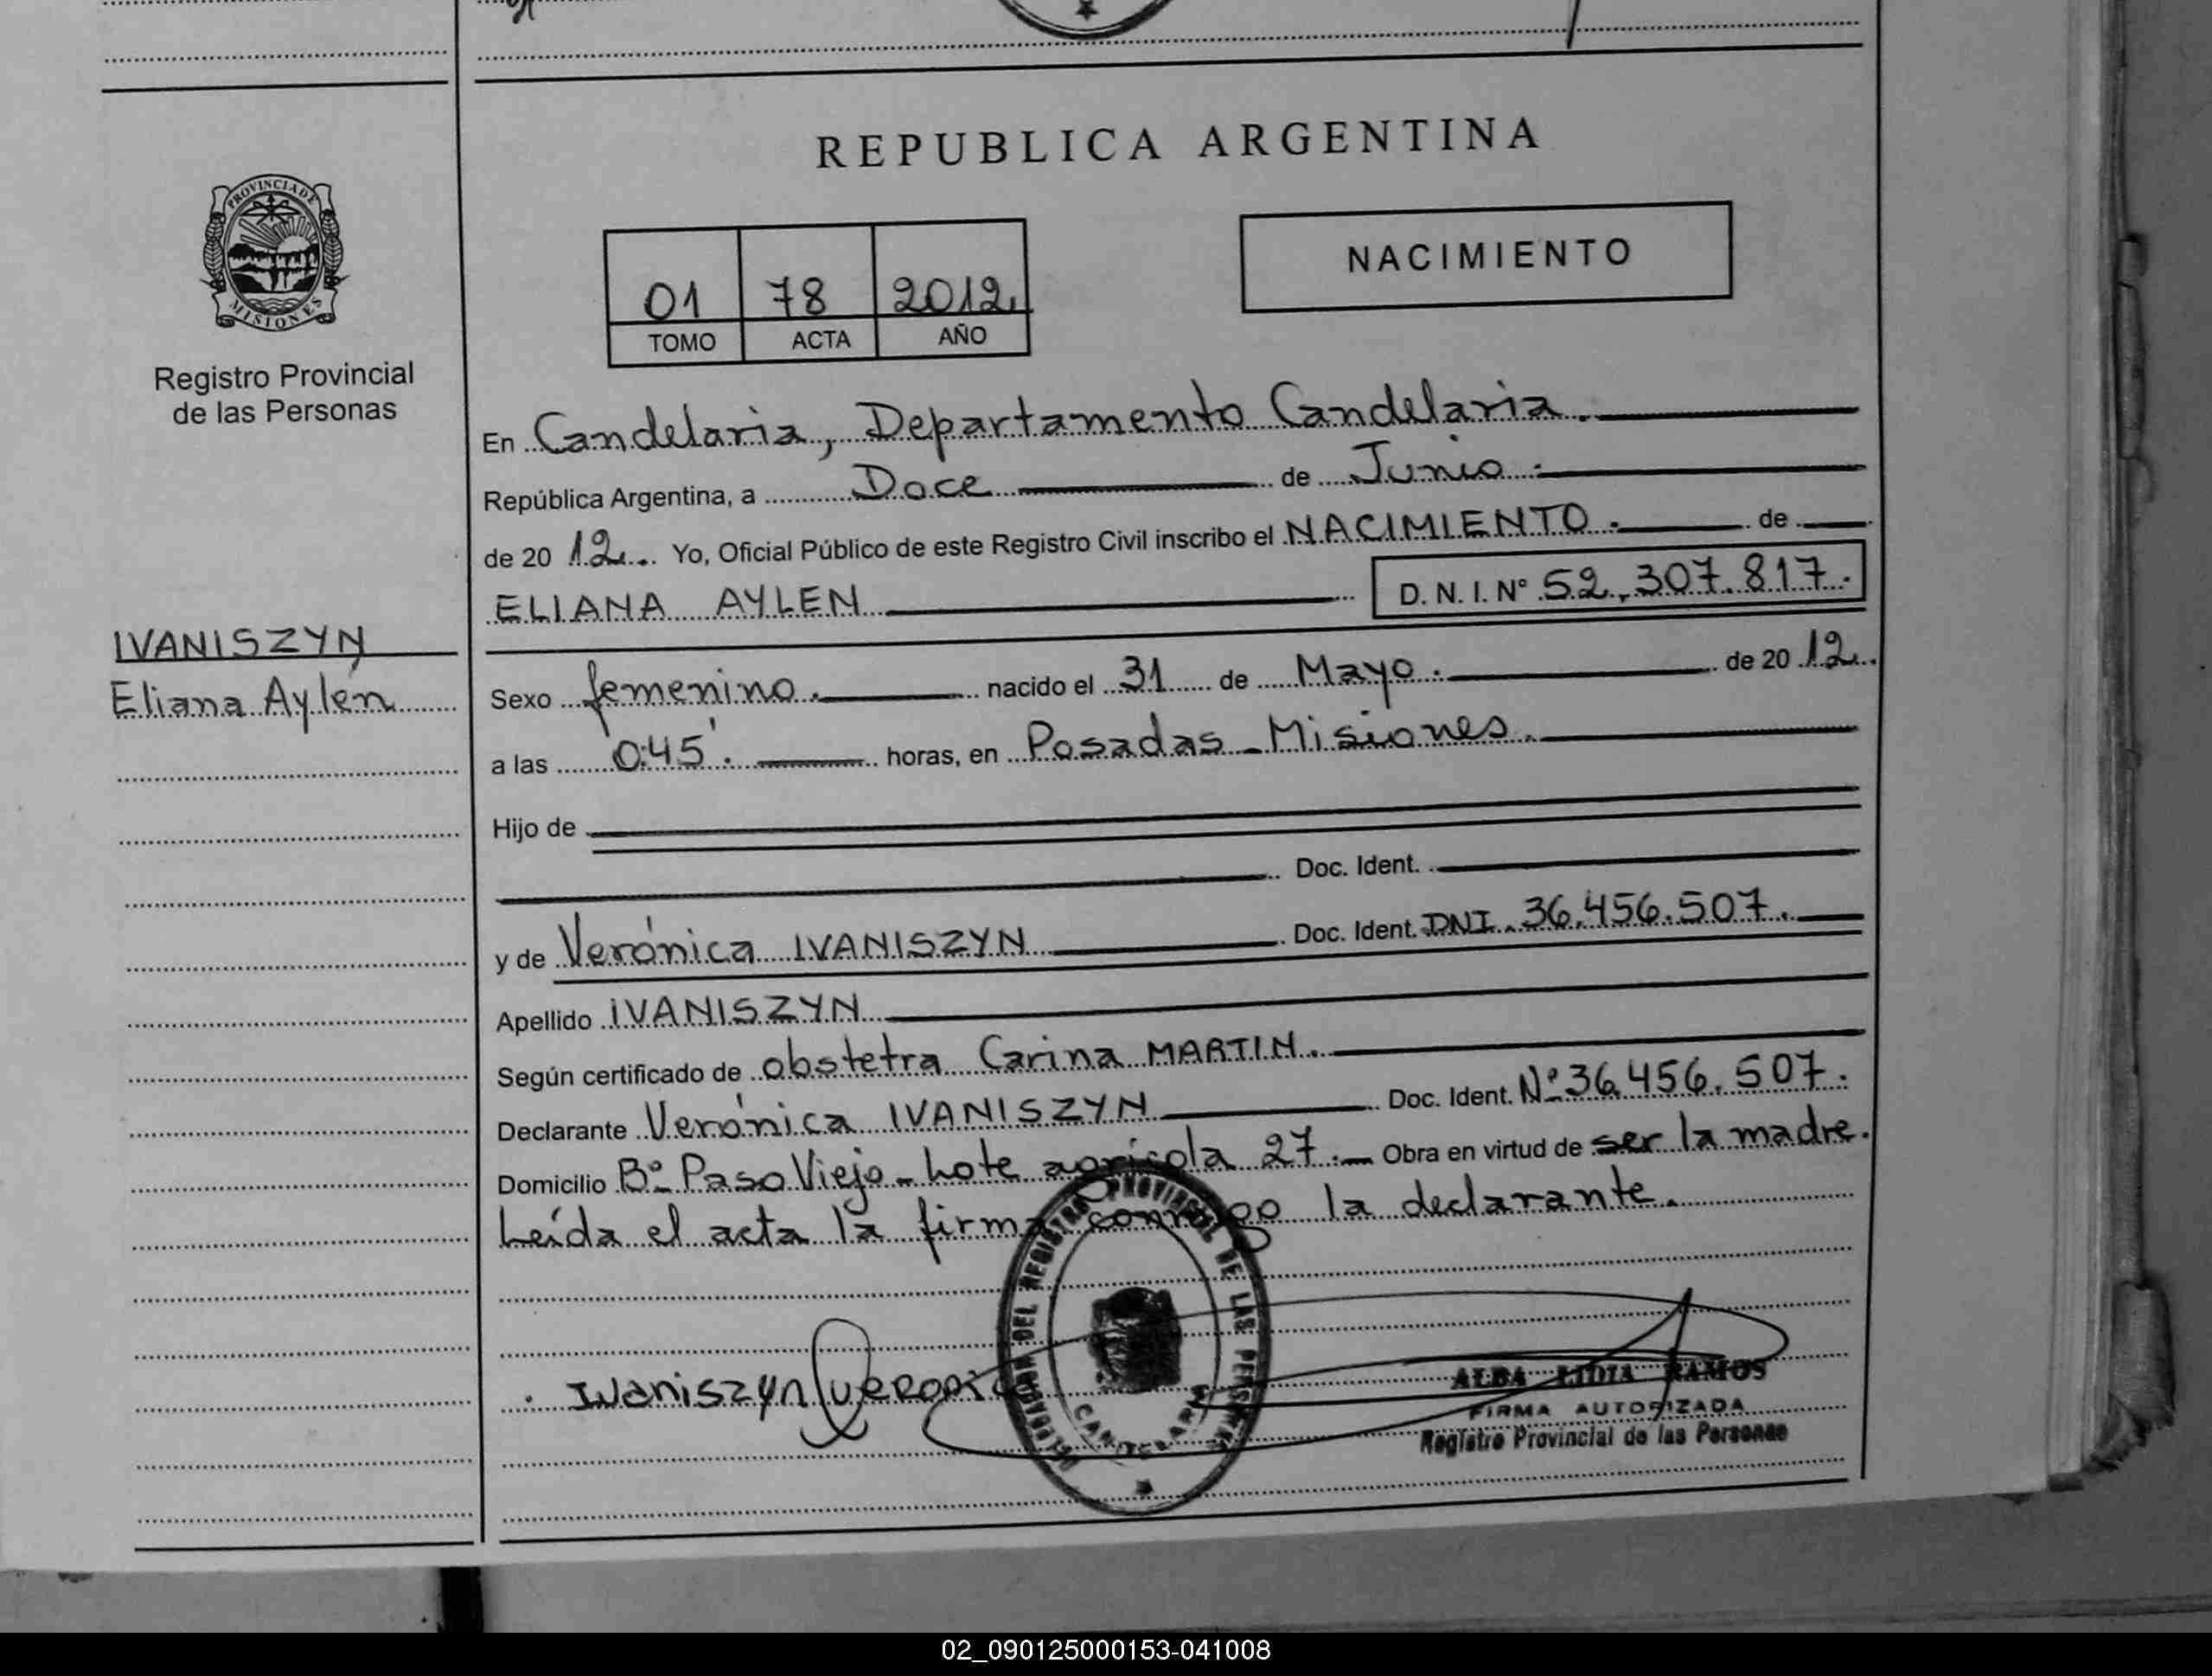 REPUBLICA ARGENTINA
PROVINCIA DE
MISIONES
Registro Provincial
de las Personas
NACIMIENTO
01 78 2012
TOMO ACTA AÑO
En Candelaria, Departamento Candelaria.
República Argentina, a Doce de Junio.
de 20 12 Yo, Oficial Público de este Registro Civil inscribo el NACIMIENTO. de
ELIANA AYLEN D. N. I. Nº 52.307.817.
IVANISZYN
Eliana Aylén
Sexo femenino. nacido el 31 de Mayo. de 20 12
a las 0:45'. horas, en Posadas - Misiones.
Hijo de
Doc. Ident.
y de Verónica IVANISZYN Doc. Ident. DNI. 36.456.507.
Apellido IVANISZYN
Según certificado de obstetra Carina MARTIN.
Declarante Verónica IVANISZYN Doc. Ident. Nº 36.456.507.
Domicilio Bº Paso Viejo - Lote agricola 27. Obra en virtud de ser la madre.
Leída el acta la firma conmigo la declarante.
DELEGACION DEL REGISTRO PROVINCIAL DE LAS PERSONAS
CANDELARIA
Ivaniszyn Veronica
ALBA LIDIA RAMOS
FIRMA AUTORIZADA
Registro Provincial de las Personas
02_090125000153-041008